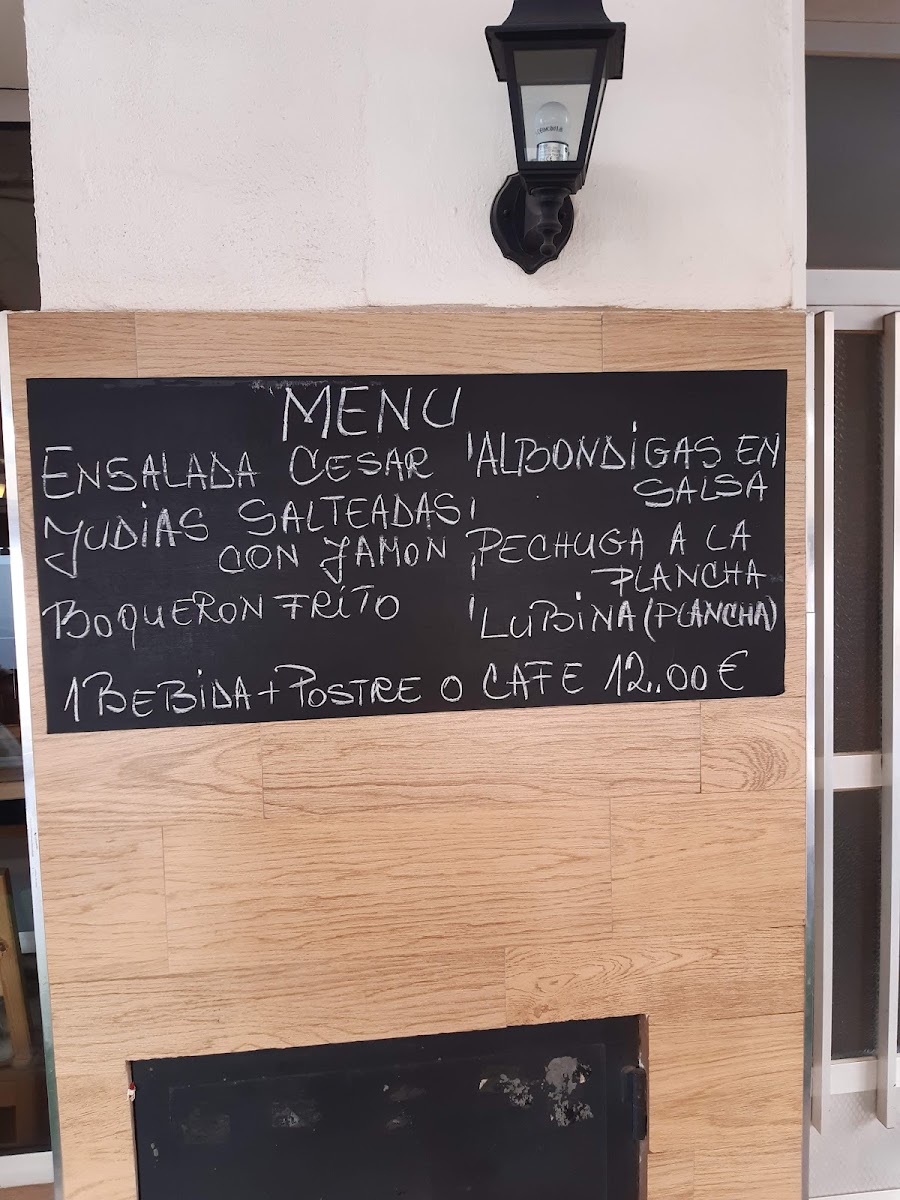 MENU
ENSALADA CESAR
JUDiAS SALTEADAS
CON JAMON
BOQUERON FRiTO
ALBONDiGAS EN
SALSA
PECHUGA A LA
PLANCHA
LUBiNA (PLANCHA)
1 BEBiDA + POSTRE O CAFE 12..00 €